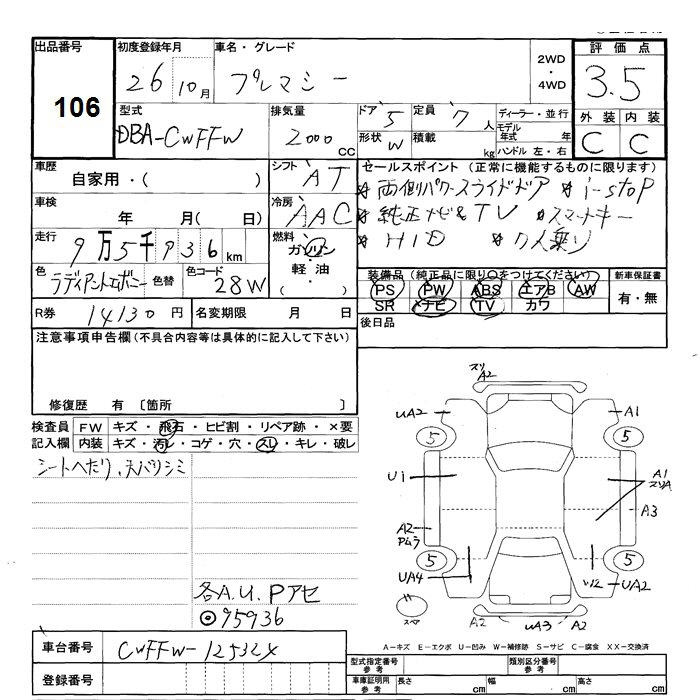 出品番号 初度登録年月 車名・グレード 2WD・4WD 評価点
106 26 10月 プレマシー 3.5
型式 排気量 ドア 5 定員 7人 ディーラー・並行 外装 内装
DBA-CWFFW 2000 CC 形状 W 積載 kg モデル年式 年 C C
ハンドル 左・右
車歴 シフト AT セールスポイント (正常に機能するものに限ります)
自家用・( )
※両側パワースライドドア ※i-stop
車検 年 月(日) 冷房 AAC ※純正ナビ&TV ※スマートキー
走行 9万5千936km 燃料 ガソリン・軽油・( ) ※HID ※7人乗り
色 ラディアントエボニー 色替 色コード 28W 装備品 (純正品に限り○をつけてください) 新車保証書
PS PW ABS エアB AW 有・無
SR ナビ TV カワ
R券 14130円 名変期限 月 日 後日品
注意事項申告欄(不具合内容等は具体的に記入して下さい)
修復歴 有 〔箇所 〕
検査員記入欄 FW キズ・飛石・ヒビ割・リペア跡・×要
内装 キズ・汚・コゲ・穴・スレ・キレ・破レ
シートヘたり、天バリシミ
スリ A2
UA2 A1
5 5
U1 A1 スリA
A3
A2 Pムラ
5 5
UA4 UA2
スペア
A2 UA3 A2
各A.U.Pアセ
◎95936
車台番号 CWFFW-12532X
A－キズ E－エクボ U－凹み W－補修跡 S－サビ C－腐食 XX－交換済
登録番号 型式指定番号 参考 類別区分番号 参考
車庫証明用 参考 長さ cm 幅 cm 高さ cm